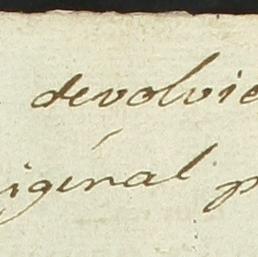 devolvie
iginal p